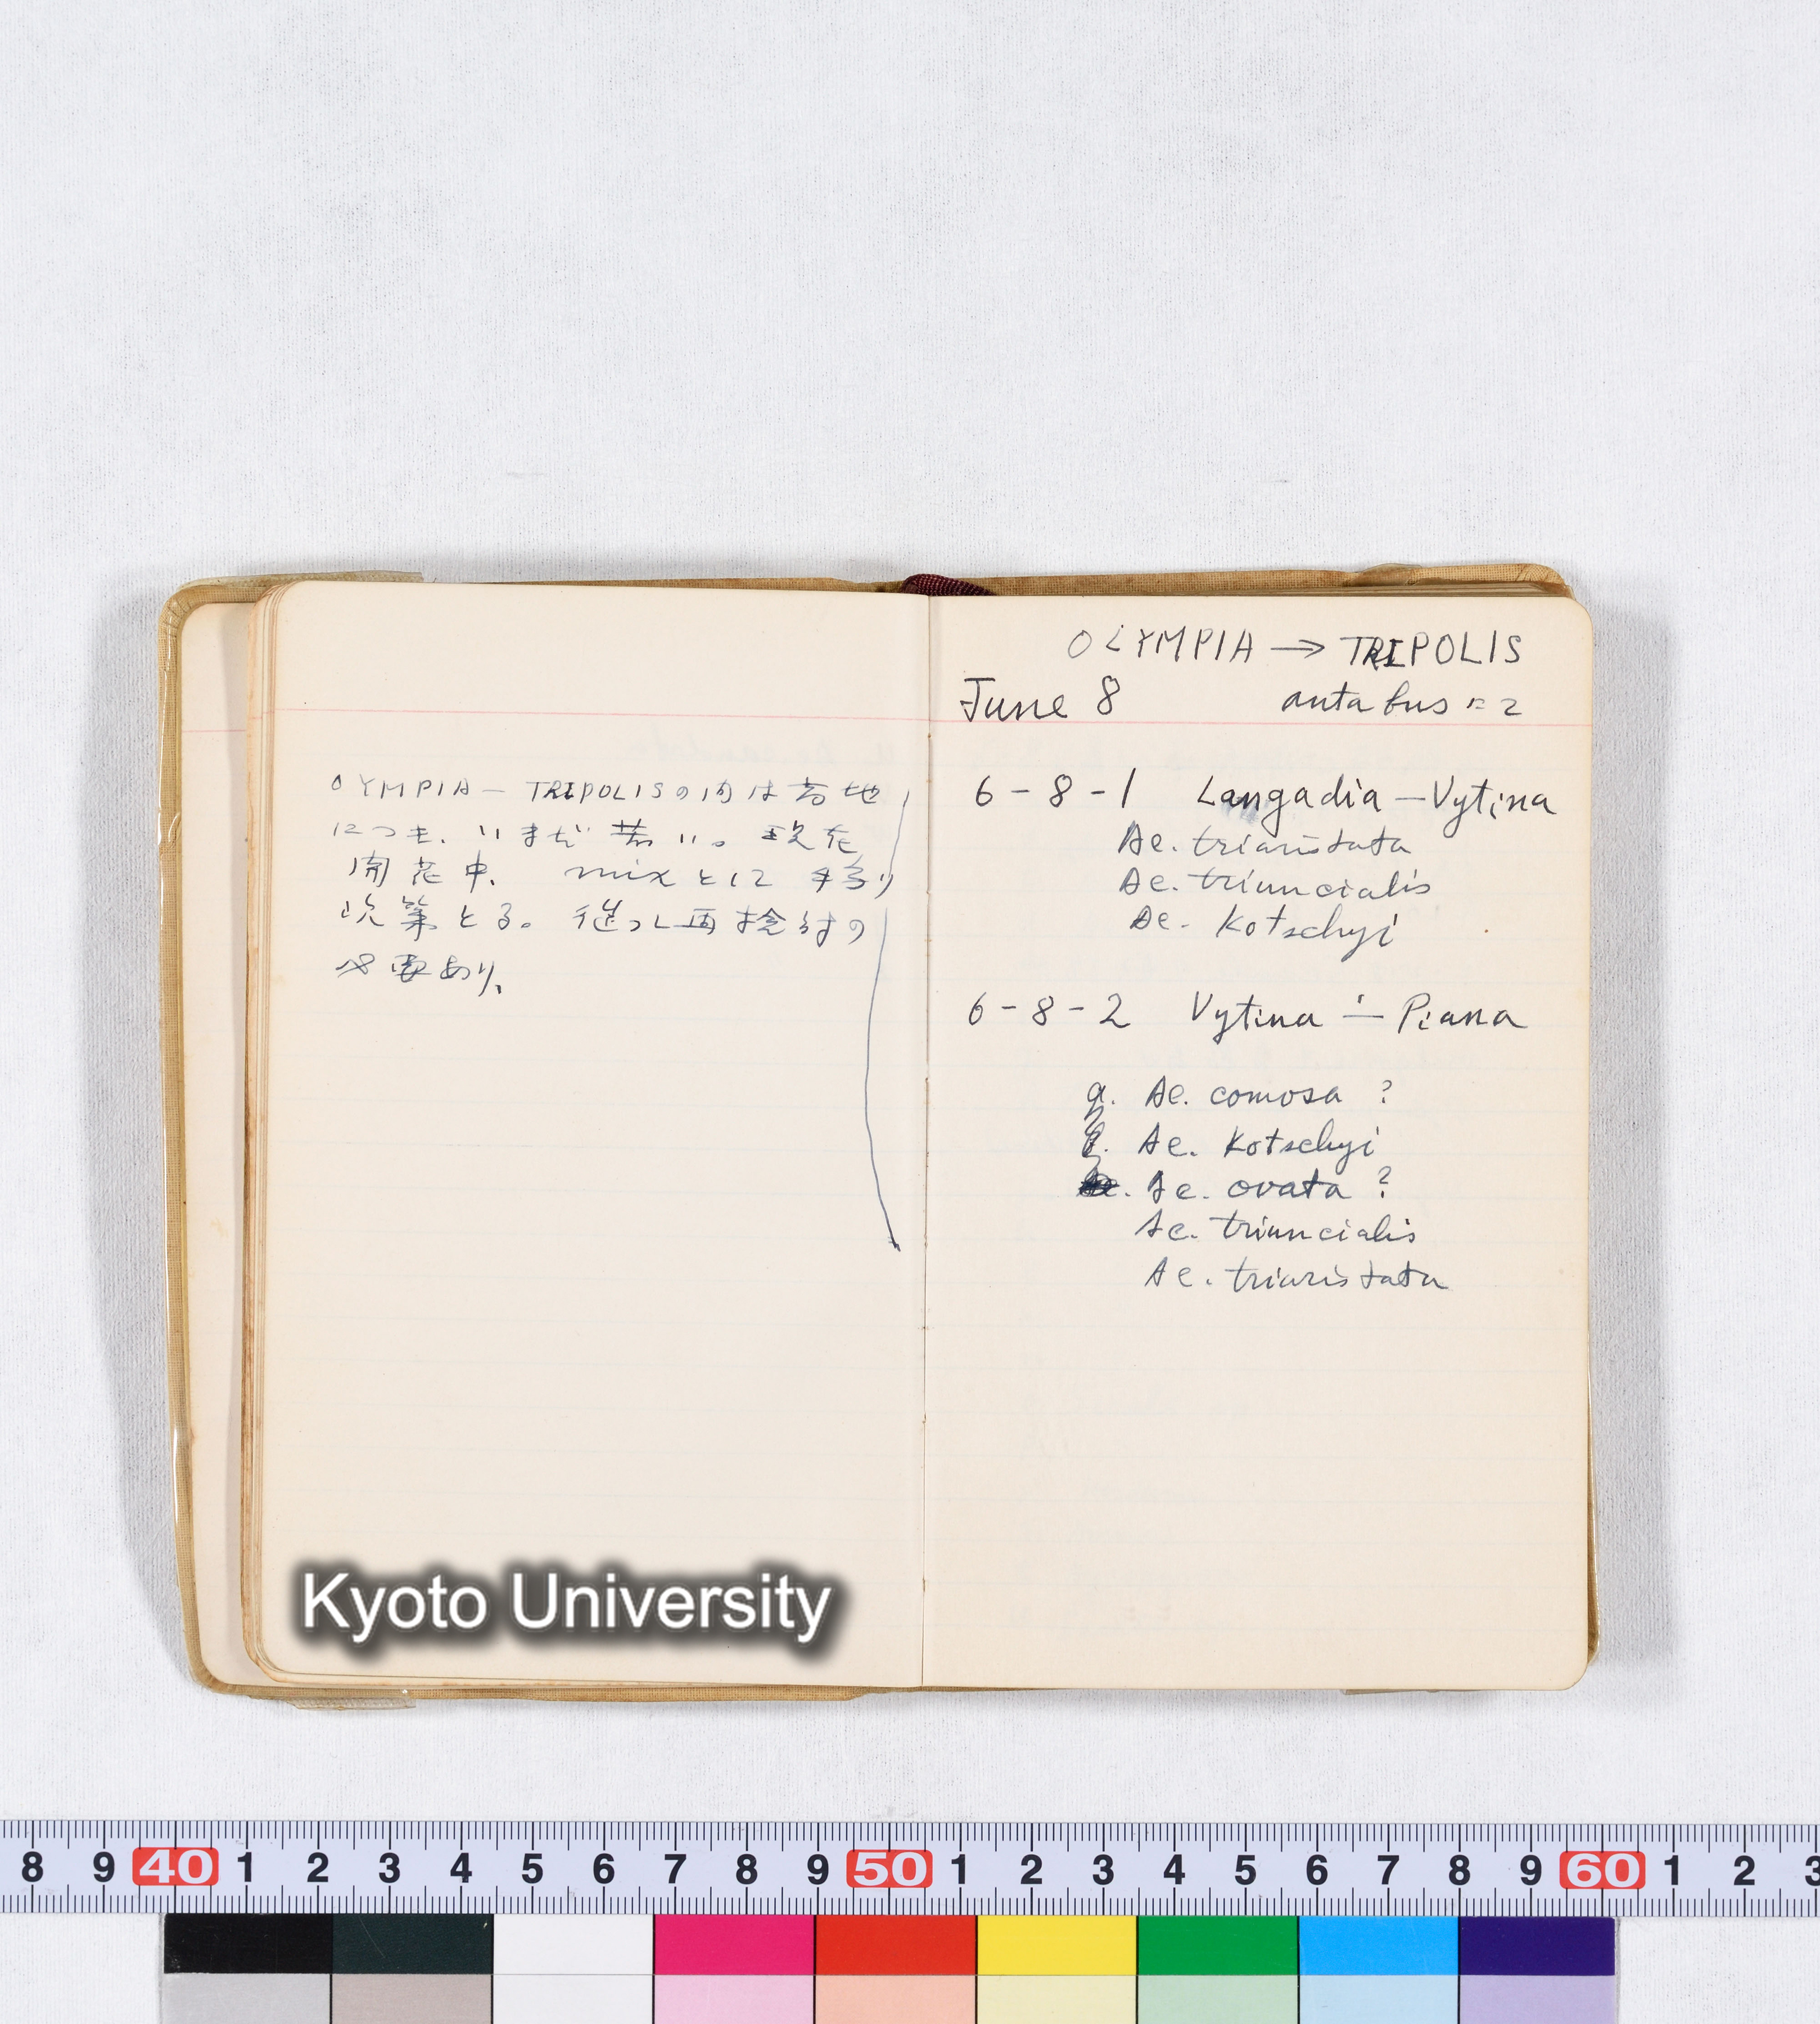 OLYMPIA — TRIPOLISの間は高地
につき、いまだ若い。現在
開花中、 mixとにに
次第とる。従つて再検討の
必要あり、
OLYMPIA → TRIPOLIS
June 8 autabus
6-8-1 Langadia — Vytina
Ae. triaristata
Ae. triuncialis
Ae. Kotschyi
6-8-2 Vytina — Piana
a. Ae. comosa ?
Ae. Kotschyi
Ae. ovata ?
Ae. triuncialis
Ae. triaristata
Kyoto University
8 9 40 1 2 3 4 5 6 7 8 9 50 1 2 3 4 5 6 7 8 9 60 1 2 3